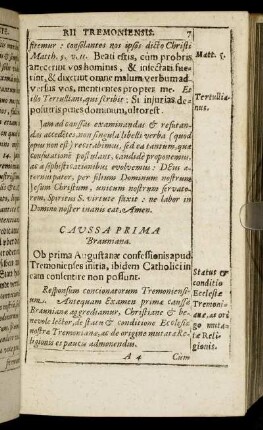 RII TREMONIENSIS. 7
firemur: consolantes nos ipsos dicto Christi
Matth. 5. v. 11. Beati estis, cum probris
affecerint vos homines, & insectati fue-
rint, & dixerint omne malum verbum ad-
versus vos, mentientes propter me. Et
illo Tertulliani, qui scribit: Si injurias de-
posueris penes dominum, ultor est.
Matt. 5.
Tertullia-
nus.
Jam ad caussas examinandas & refutan-
das accedeto, non singula libelli verba (quod
opus non est) recitabimus, sed ea tantum, quæ
confutationem postulant, candidè proponemus,
ac à sophisticationibus evolvemus: Deus æ-
ternus pater, per filium Dominum nostrum
Jesum Christum, unicum nostrum servato-
rem, Spiritus S. virtute faxit: ne labor in
Domino noster inanis cat, Amen.
CAUSSA PRIMA
Brauniana.
Ob prima Augustanæ confessionis apud
Tremonienses initia, ibidem Catholici in
eam consentire non possunt.
Responsum concionatorum Tremoniensi-
um. Antequam Examen primæ caussæ
Braunianæ aggrediamur, Christiane & be-
nevole lector, de statu & conditione Ecclesiæ
nostræ Tremonianæ, ac de origine mutatæ Re-
ligionis es paucis admonendus.
Status &
conditio
Ecclesiæ
Tremoni-
anæ, ac ori
go muta-
tæ Reli-
gionis.
A 4 Cum